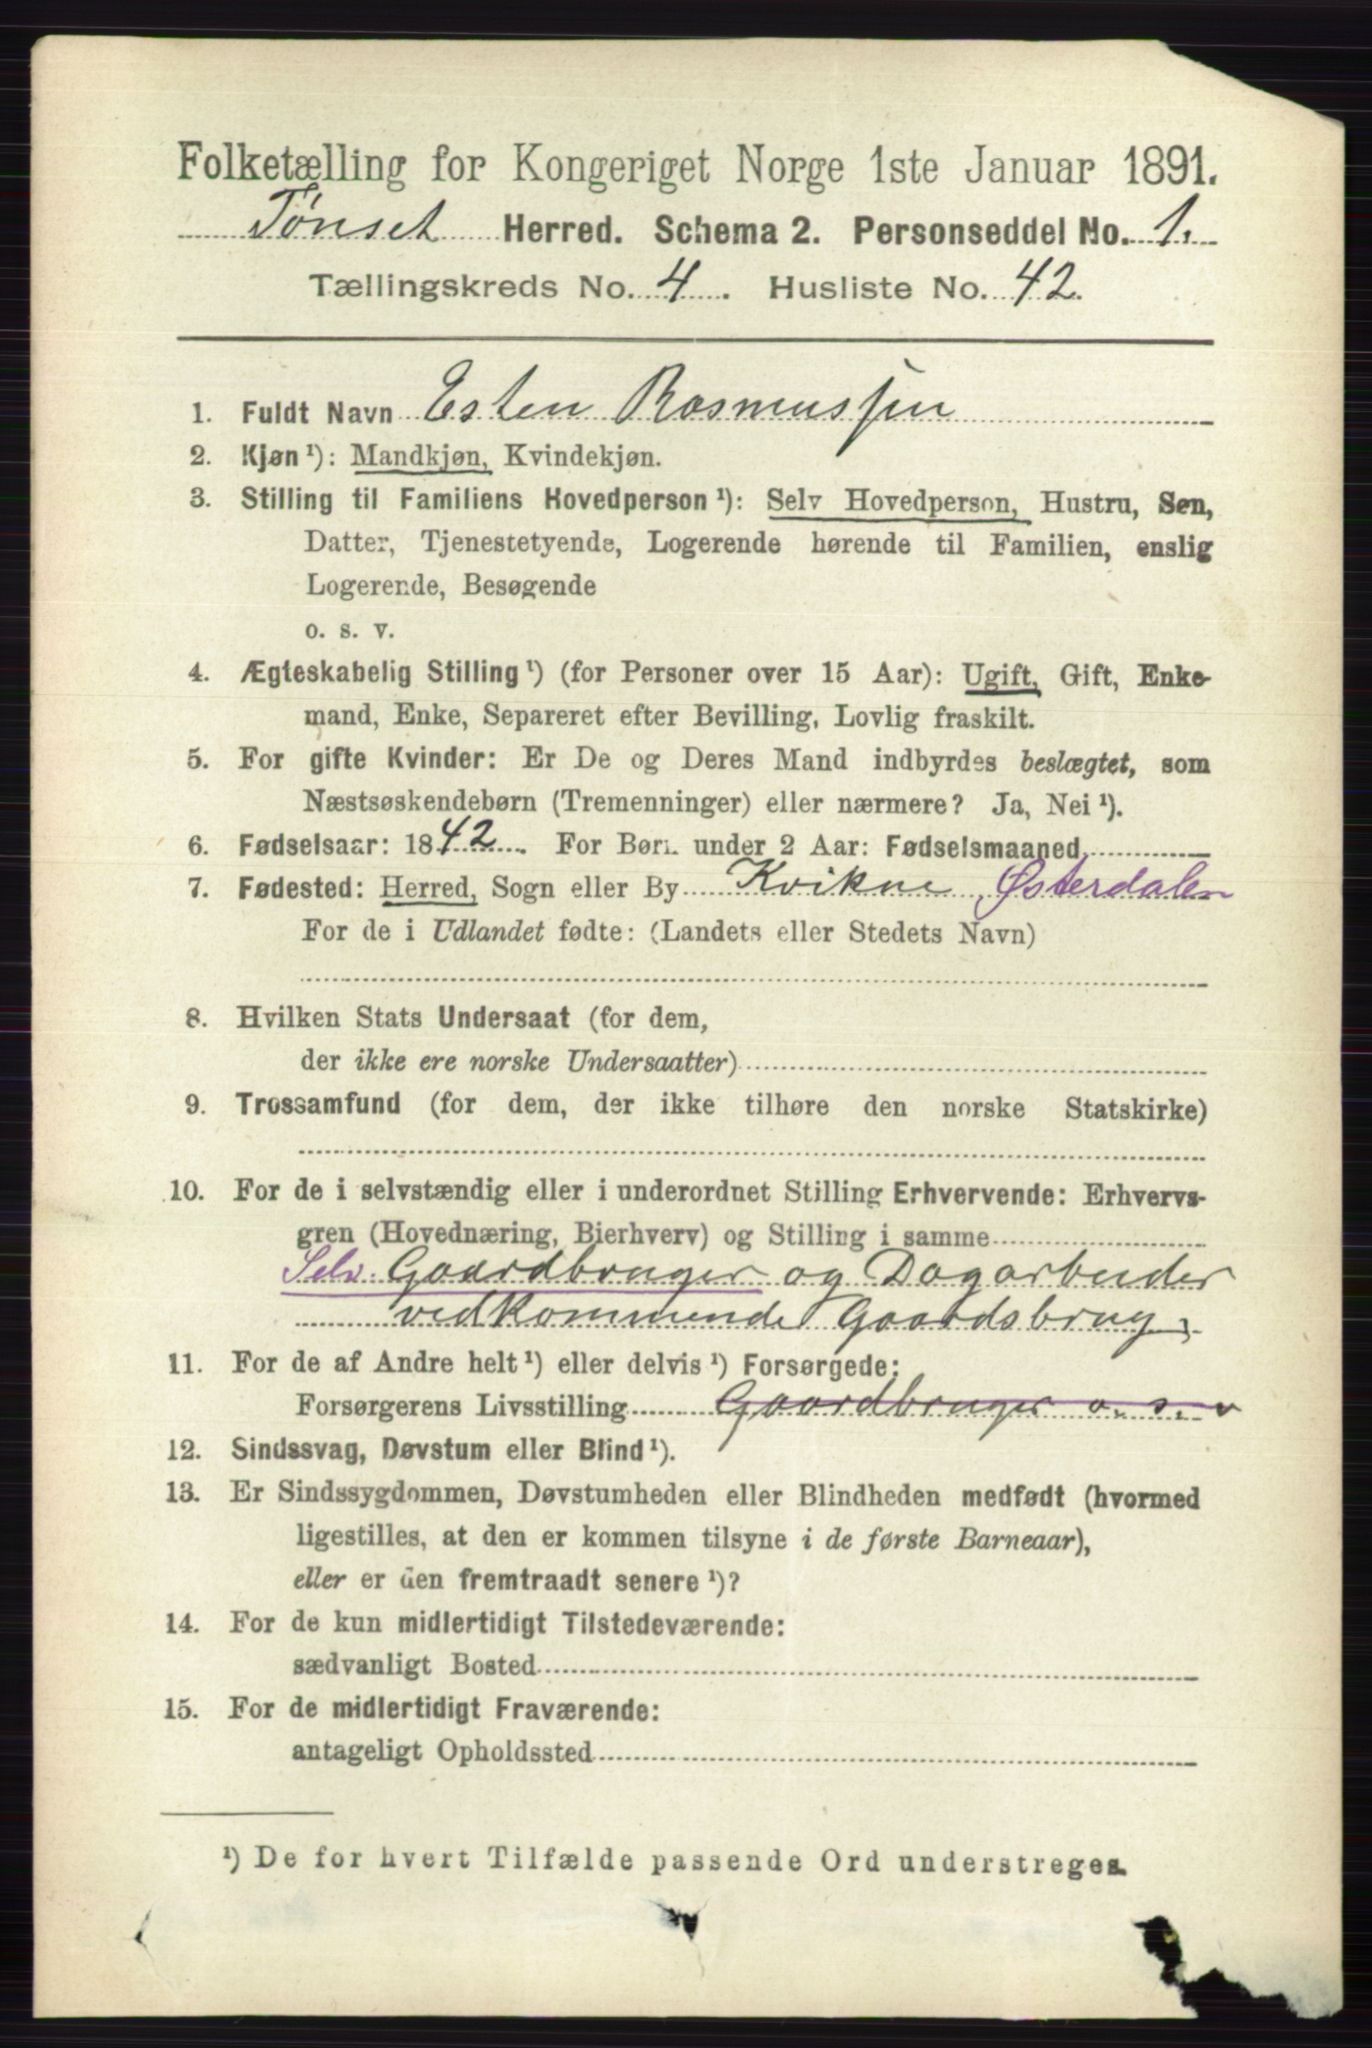 Folketælling for Kongeriget Norge 1ste Januar 1891.
Tönset Herred. Schema 2. Personseddel No. 1.
Tællingskreds No. 4. Husliste No. 42.
1. Fuldt Navn Esten Rasmussen
2. Kjøn¹): Mandkjøn, Kvindekjøn.
3. Stilling til Familiens Hovedperson¹): Selv Hovedperson, Hustru, Søn,
Datter, Tjenestetyende, Logerende hørende til Familien, enslig
Logerende, Besøgende
o. s. v.
4. Ægteskabelig Stilling¹) (for Personer over 15 Aar): Ugift, Gift, Enke-
mand, Enke, Separeret efter Bevilling, Lovlig fraskilt.
5. For gifte Kvinder: Er De og Deres Mand indbyrdes beslægtet, som
Næstsøskendebørn (Tremenninger) eller nærmere? Ja, Nei¹).
6. Fødselsaar: 1842. For Børn under 2 Aar: Fødselsmaaned
7. Fødested: Herred, Sogn eller By Kvikne, Østerdalen
For de i Udlandet fødte: (Landets eller Stedets Navn)
8. Hvilken Stats Undersaat (for dem,
der ikke ere norske Undersaatter)
9. Trossamfund (for dem, der ikke tilhøre den norske Statskirke)
10. For de i selvstændig eller i underordnet Stilling Erhvervende: Erhvervs-
gren (Hovednæring, Bierhverv) og Stilling i samme
Selv. Gaardbruger og Dagarbeider
vedkommende Gaardsbrug,
11. For de af Andre helt¹) eller delvis¹) Forsørgede:
Forsørgerens Livsstilling Gaardbruger o. s. v
12. Sindssvag, Døvstum eller Blind¹).
13. Er Sindssygdommen, Døvstumheden eller Blindheden medfødt (hvormed
ligestilles, at den er kommen tilsyne i de første Barneaar),
eller er den fremtraadt senere¹)?
14. For de kun midlertidigt Tilstedeværende:
sædvanligt Bosted
15. For de midlertidigt Fraværende:
antageligt Opholdssted
¹) De for hvert Tilfælde passende Ord understreges.